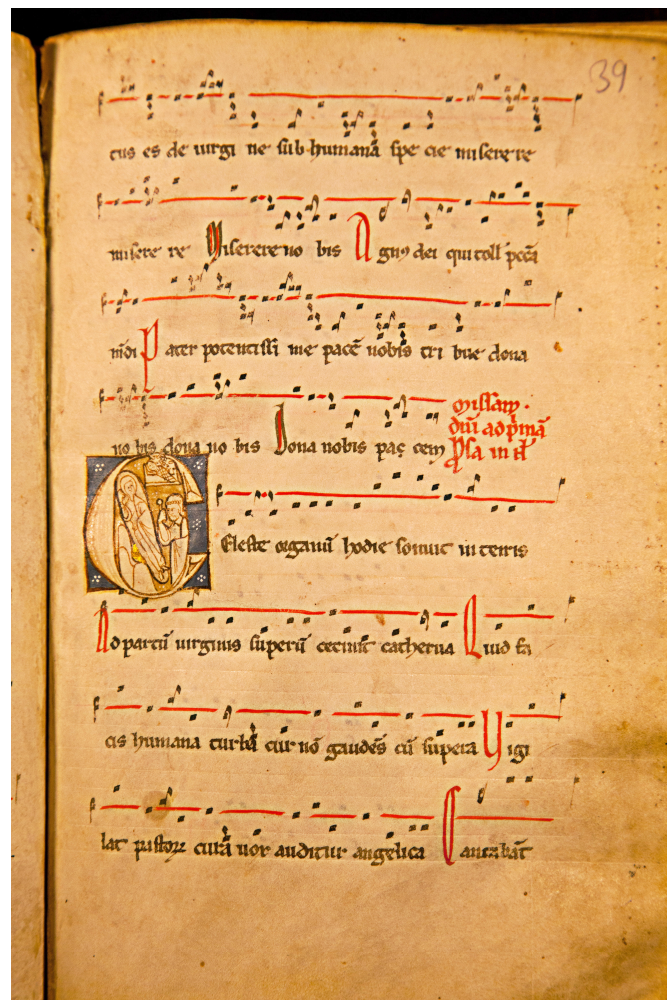 39
tus es de uirgi ne sub humanā spe cie miserere re
misere re Miserere no bis Agnꝰ dei qui toll' pccā
mūdi Pater potentissi me pacē nobis tri bue dona
no bis dona no bis Dona nobis pac cem
missam.
dni ad pͥmā
Psa in
Celeste organū hodie sonuit in terris
Ad partū uirginis superū cecinit catherua Quid fa
cis humana turba cur nō gaudes cū supera Vigi
lat pastorꝝ cura uox auditur angelica Cantabāt